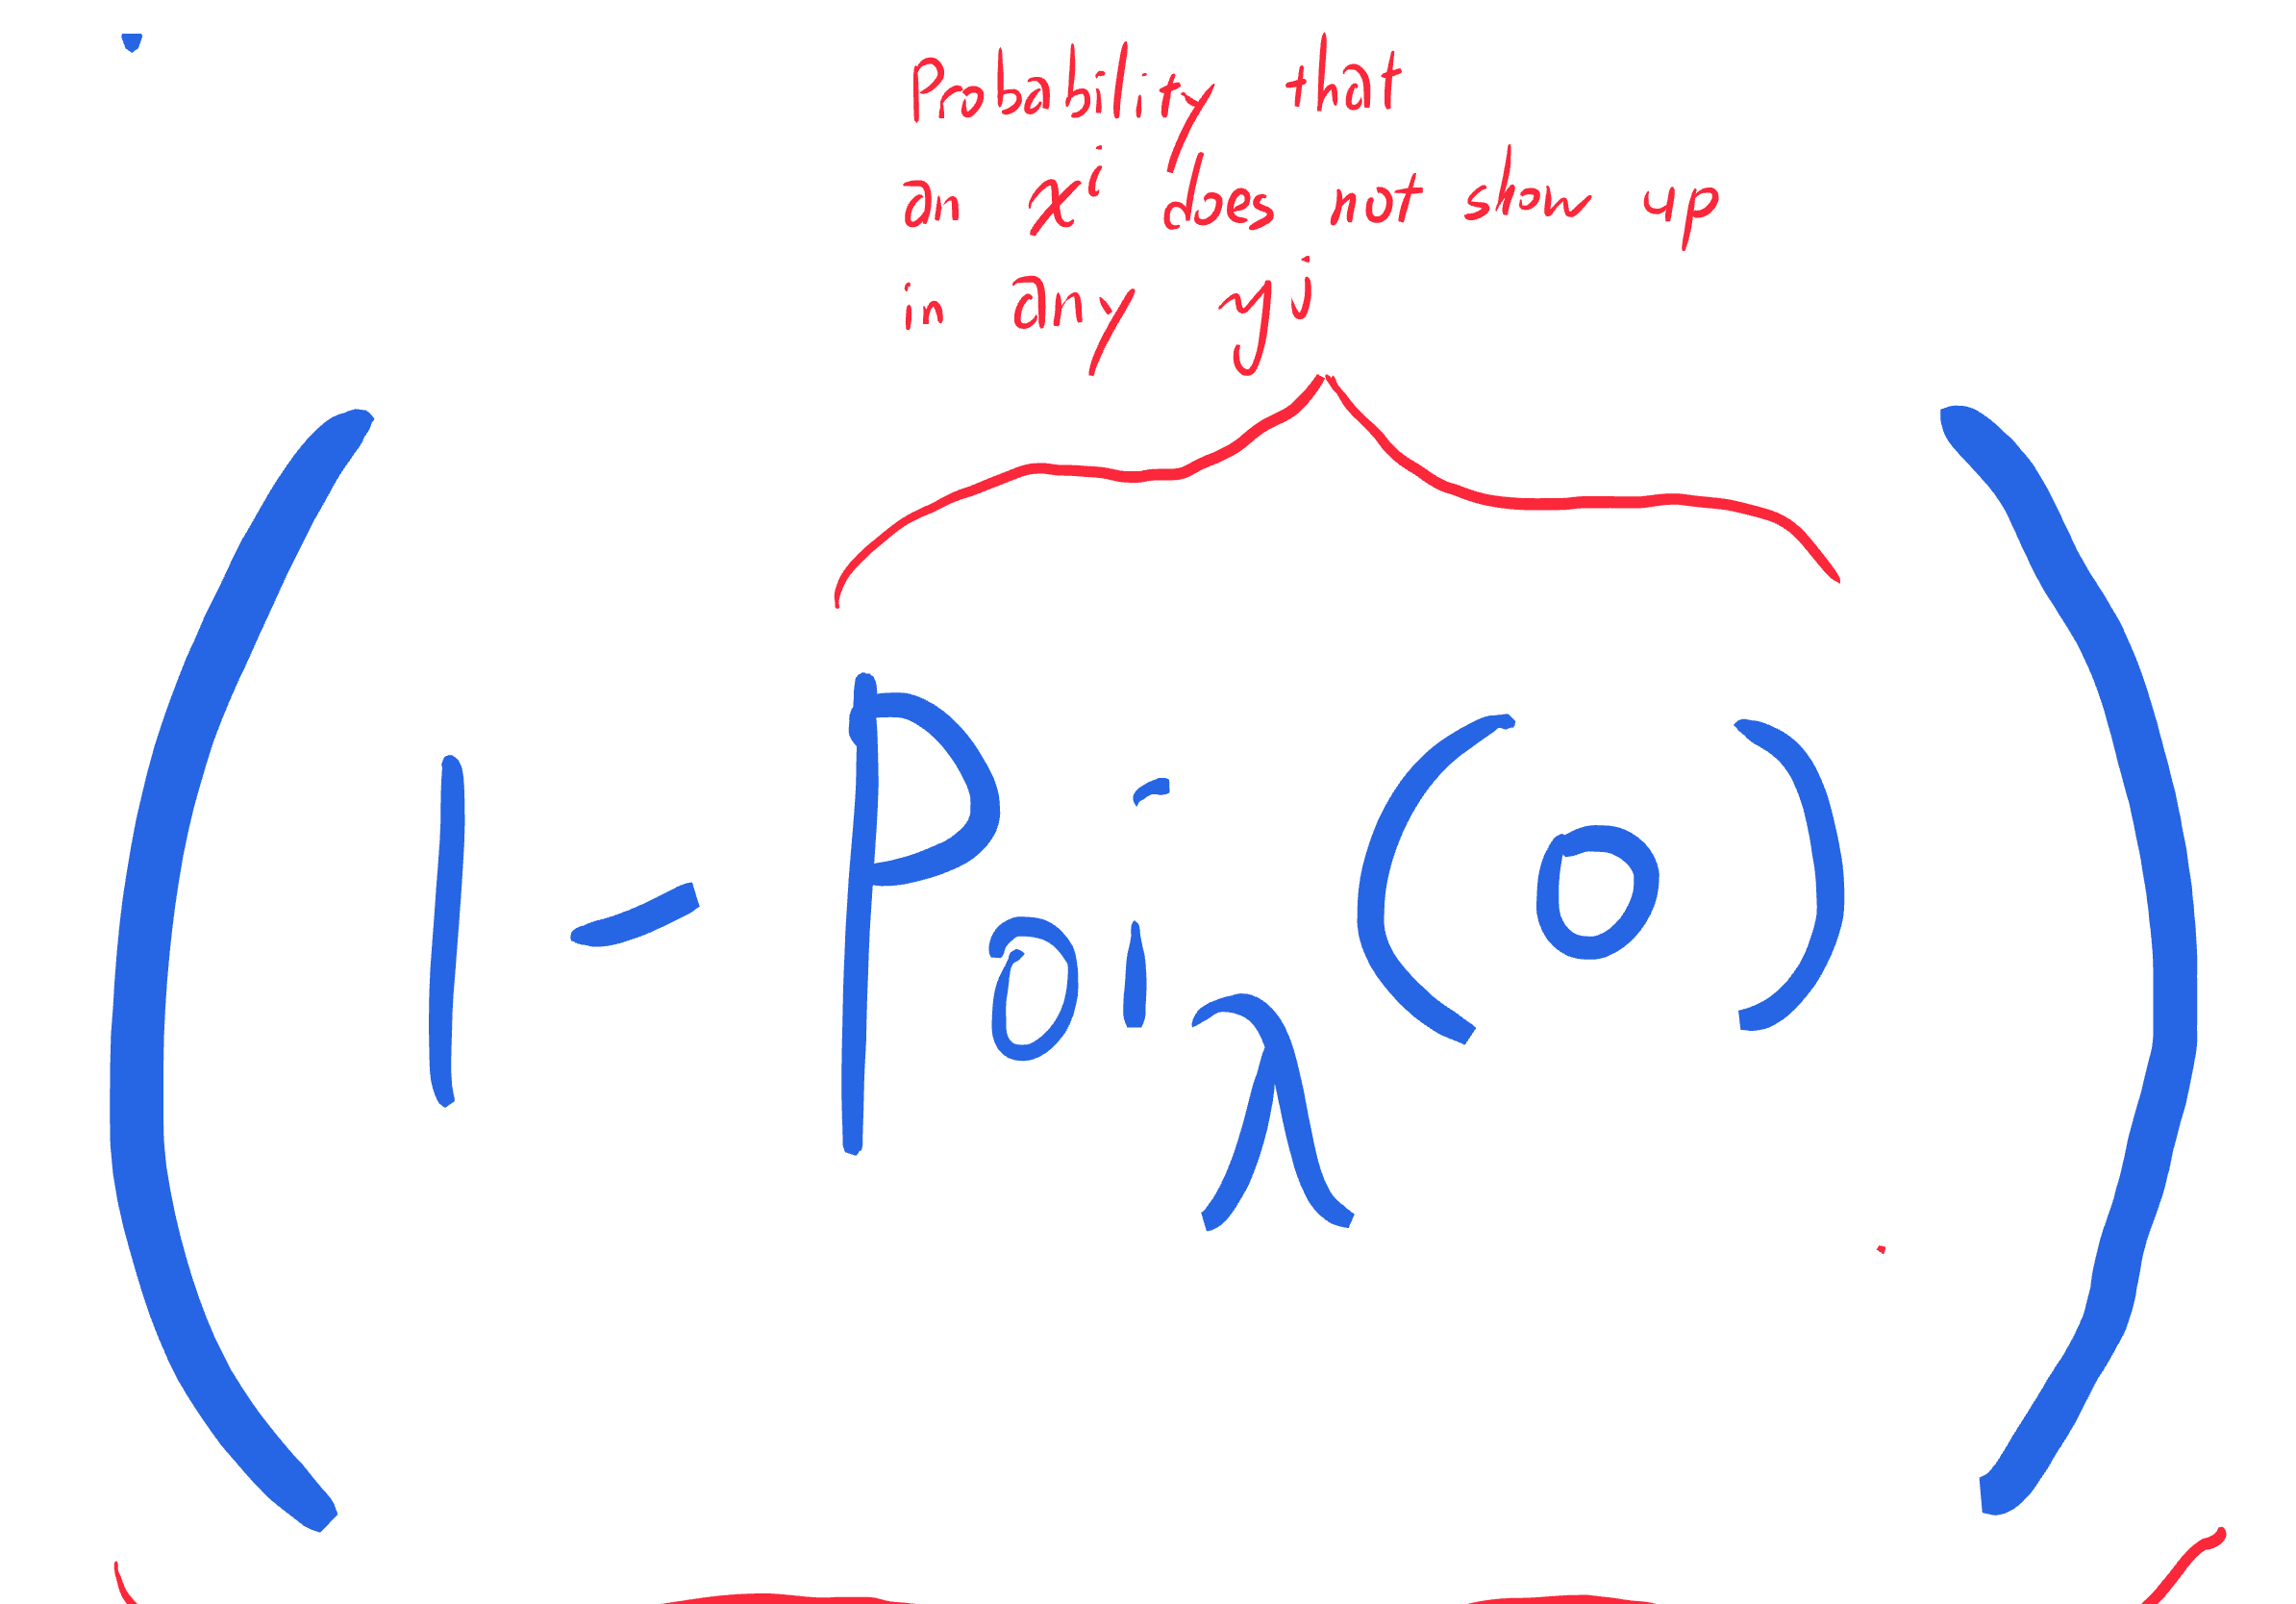 Probability that
an xⁱ does not show up
in any yʲ
(1 - Poi_λ(0))